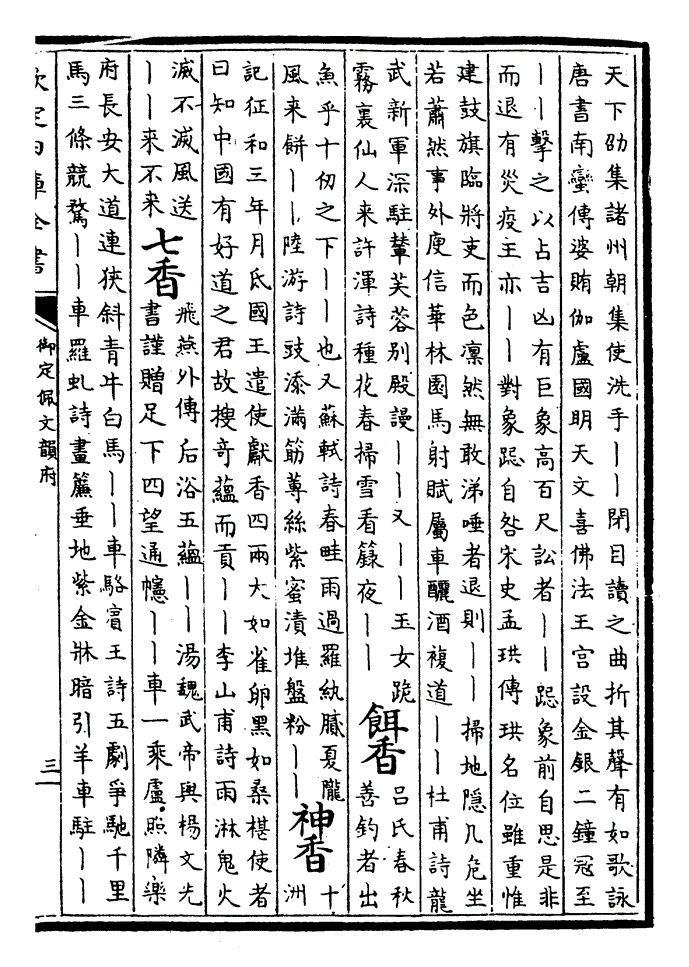 天下劭集諸州朝集使洗手丨丨閉目讀之曲折其聲有如歌詠
唐書南蠻傳婆賄伽盧國明天文喜佛法王宫設金銀二鐘冠至
丨丨擊之以占吉凶有巨象高百尺訟者丨丨跽象前自思是非
而退有災疫主亦丨丨對象跽自咎宋史孟珙傳珙名位雖重惟
建鼓旗臨將吏而色凛然無敢涕唾者退則丨丨掃地隱几危坐
若蕭然事外庾信華林園馬射賦屬車釃酒複道丨丨杜甫詩龍
武新軍深駐輦芙蓉别殿謾丨丨又丨丨丨玉女跪
霧裏仙人来許渾詩種花春掃雪看籙夜丨丨
餌香
吕氏春秋
善釣者出
魚乎十仞之下丨丨也又蘇軾詩春畦雨過羅紈膩夏隴
風来餅丨丨陸游詩豉添滿筋蓴絲紫蜜漬堆盤粉丨丨
神香
十
洲
記征和三年月氐國王遣使獻香四兩大如雀卵黑如桑椹使者
曰知中國有好道之君故搜奇藴而貢丨丨李山甫詩雨淋鬼火
滅不滅風送
丨丨来不来
七香
飛燕外傳后浴五藴丨丨湯魏武帝與楊文先
書謹贈足下四望通幰丨丨車一乘盧照隣樂
府長安大道連狹斜青牛白馬丨丨車駱賓王詩五劇爭馳千里
馬三條競騖丨丨車羅虬詩畫簾垂地紫金牀暗引羊車駐丨丨
欽定四庫全書
御定佩文韻府
三